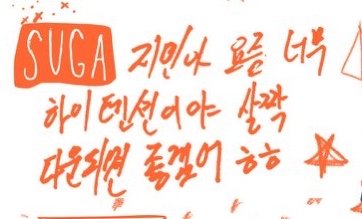 SUGA 지민아 요즘 너무
하이 텐션이야 살짝
다운되면 좋겠어 ㅎㅎ